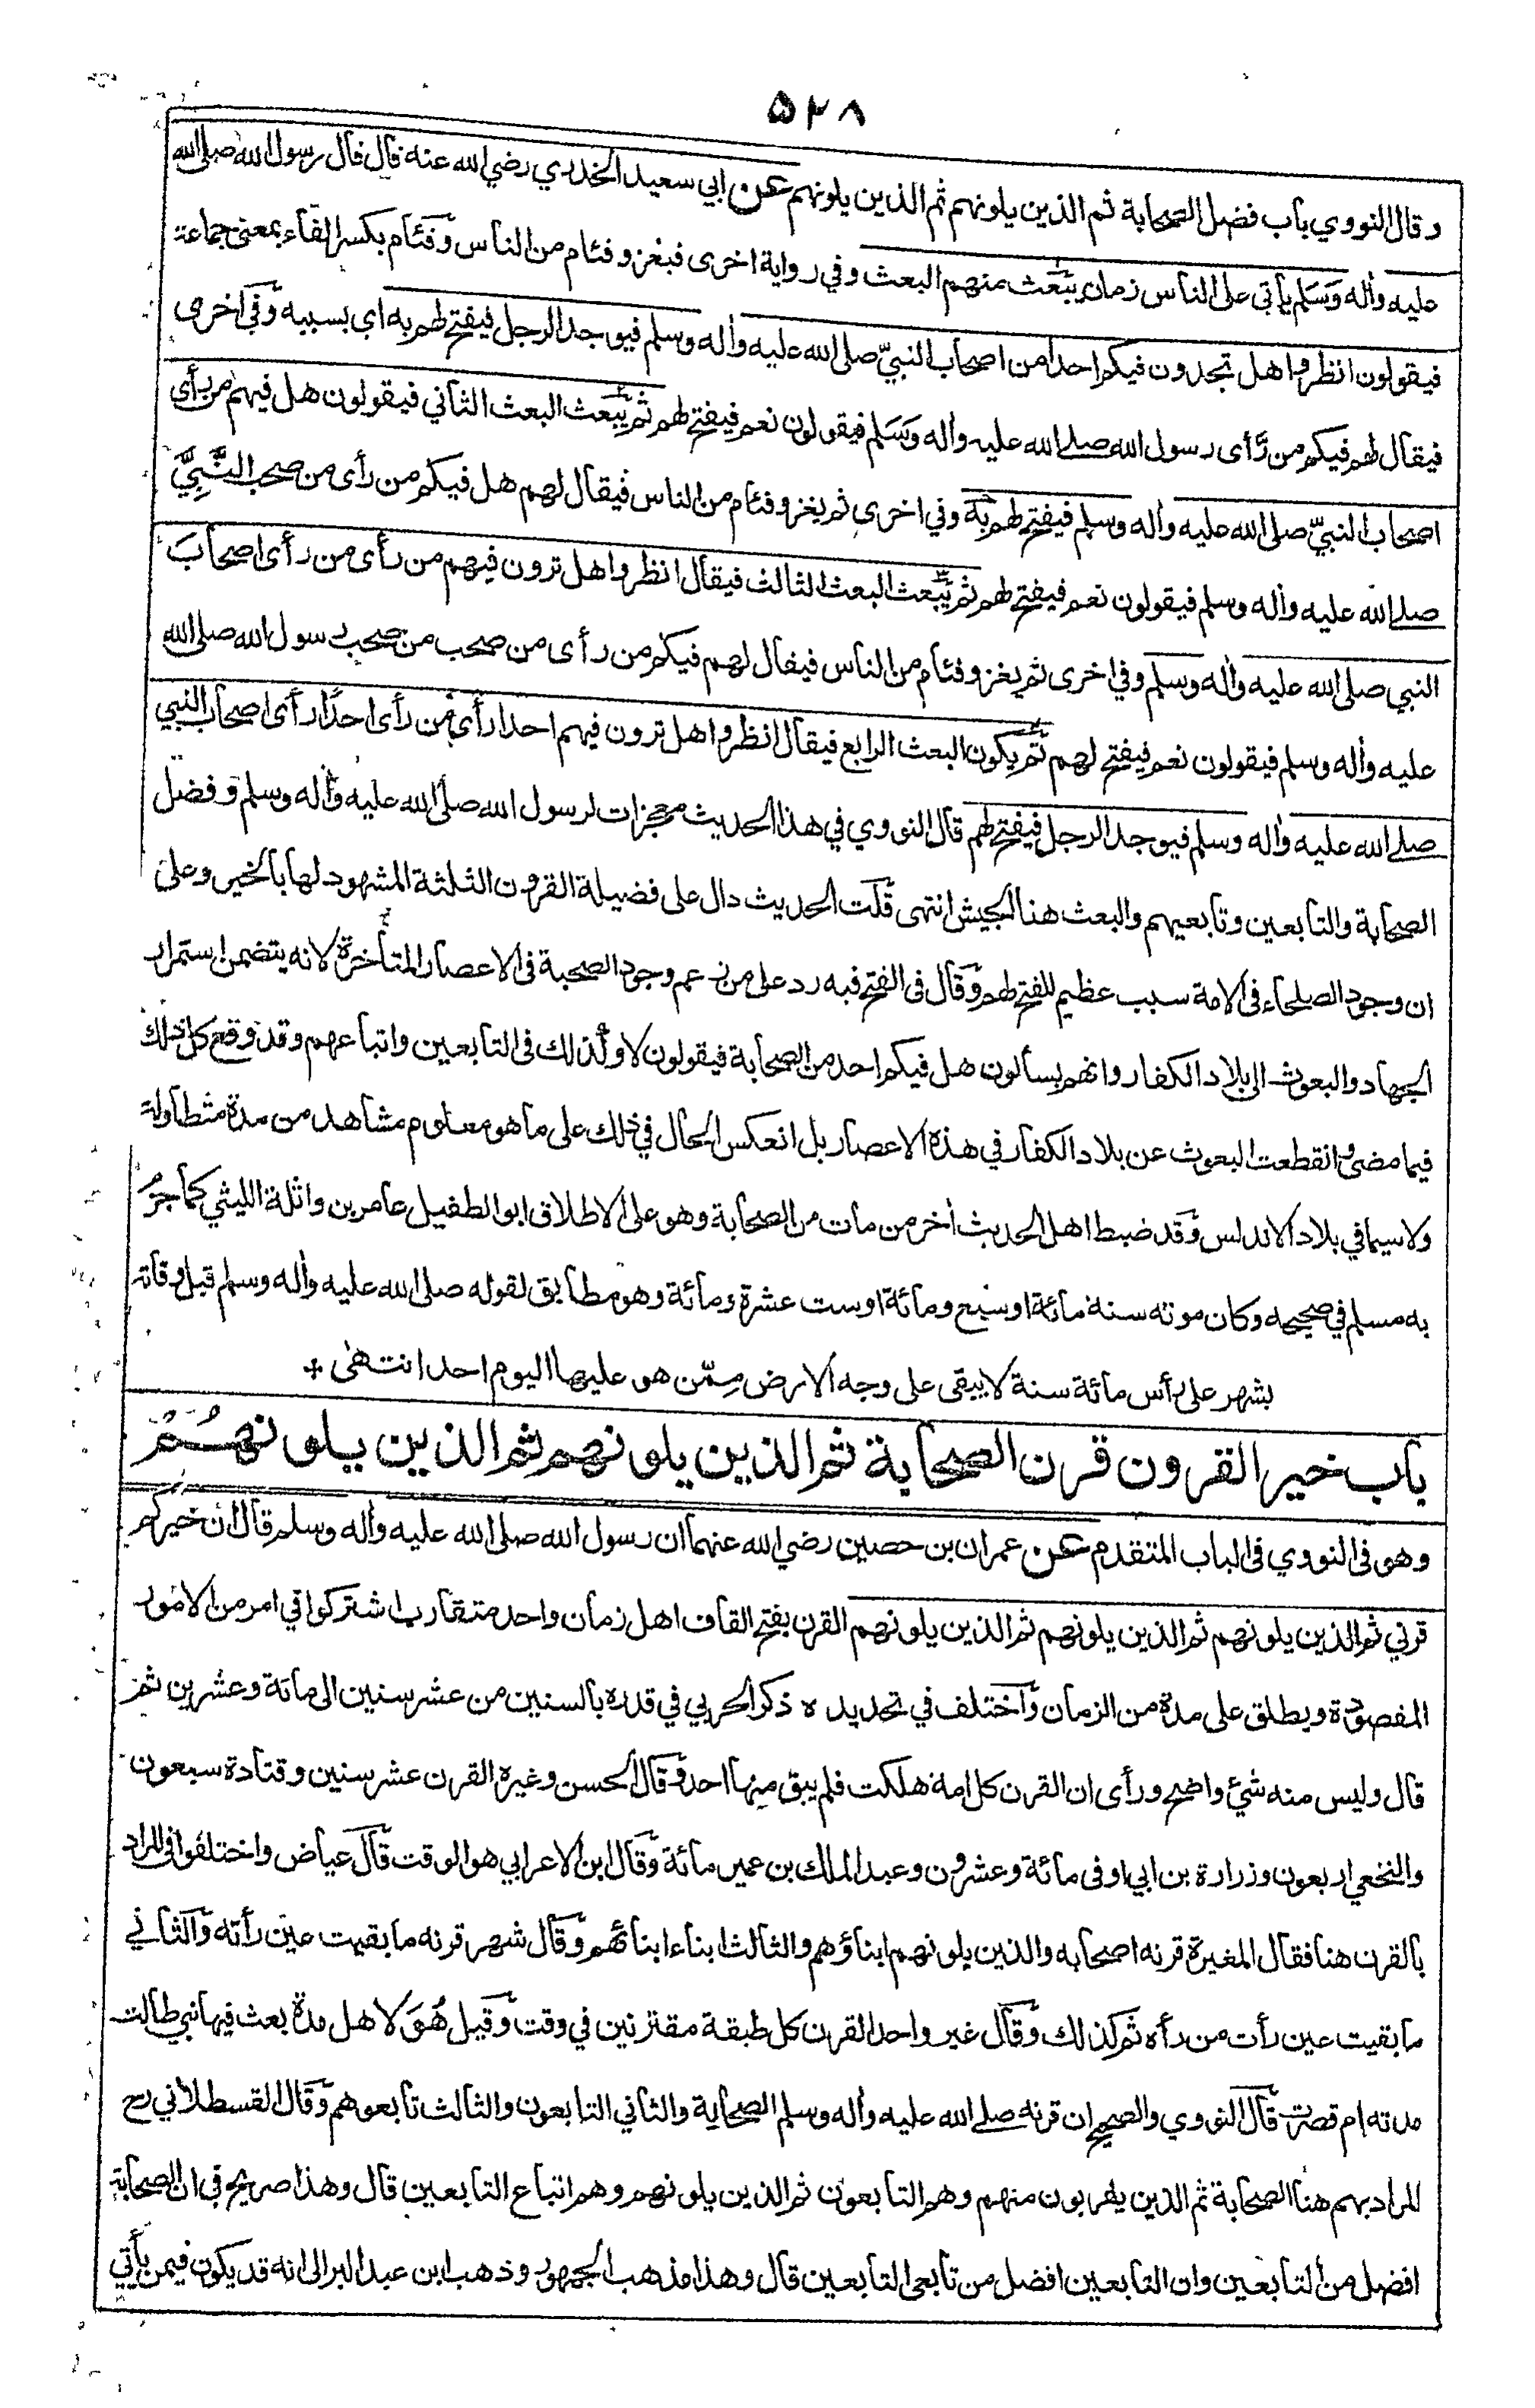 ۵۲۸
وقال النووي باب فضل الصحابة ثم الذين يلونهم ثم الذين يلونهم عن ابي سعيد الخدري رضي الله عنه قال قال رسول الله صلى الله
عليه واٰله وَسَلم يأتي على الناس زمان يُبْعَث منهم البعث وفي رواية اخرى فيغزو فئام من الناس وفئام بكسر الفاء بمعنى جماعة
فيقولون انظروا هل تجدون فيكم احدا من اصحاب النبيّ صلى الله عليه واٰله وسلم فيوجد الرجل فيفتح لهم به اي بسببه وفي اخرى
فيقال لهم فيكم من رَّأى رسول الله صلى الله عليه واٰله وَسَلم فيقولون نعم فيفتح لهم ثم يُبعث البعث الثاني فيقولون هل فيهم من رأى
اصحاب النبيّ صلى الله عليه واٰله وسلم فيفتح لهم به وفي اخرى ثم يغزو فئام من الناس فيقال لهم هل فيكم من رأى من صحب النَّبِيَّ
صلى الله عليه واٰله وسلم فيقولون نعم فيفتح لهم ثم يُبعث البعث الثالث فيقال انظروا هل ترون فيهم من رأى من رأى اصحابَ
النبي صلى الله عليه واٰله وسلم وفي اخرى ثم يغزو فئام من الناس فيقال لهم فيكم من رأى من صحب من صحب رسول الله صلى الله
عليه واٰله وسلم فيقولون نعم فيفتح لهم ثم يكون البعث الرابع فيقال انظروا هل ترون فيهم احدا رأى من رأى احدًا رأى اصحاب النبي
صلى الله عليه واٰله وسلم فيوجد الرجل فيفتح لهم قال النووي في هذا الحديث معجزات لرسول الله صلى الله عليه واٰله وسلم وفضل
الصحابة والتابعين وتابعيهم والبعث هنا الجيش انتهى قلت الحديث دال على فضيلة القرون الثلثة المشهود لها بالخير وعلى
ان وجود الصلحاء في الامة سبب عظيم للفتح لهم وقال في الفتح فيه رد على من زعم وجود الصحبة في الاعصار المتأخرة لانه يتضمن استمرار
الجهاد والبعوث الى بلاد الكفار وانهم يسألون هل فيكم احد من الصحابة فيقولون لا وكذلك في التابعين واتباعهم وقد وقع كل ذلك
فيما مضى وانقطعت البعوث عن بلاد الكفار في هذه الاعصار بل انعكس الحال في ذلك على ما هو معلوم مشاهد من مدة متطاولة
ولاسيما في بلاد الاندلس وقد ضبط اهل الحديث اٰخر من مات من الصحابة وهو على الاطلاق ابو الطفيل عامر بن واثلة الليثي كما جزم
به مسلم في صحيحه وكان موته سنة مائة او سبع ومائة او ست عشرة ومائة وهو مطابق لقوله صلى الله عليه واٰله وسلم قبل وفاته
بشهر على رأس مائة سنة لا يبقى على وجه الارض مِمّن هو عليها اليوم احد انتهٰى +
باب خير القرون قرن الصحابة ثم الذين يلونهم ثم الذين يلونهُمْ
وهو في النووي في الباب المتقدم عن عمران بن حصين رضي الله عنهما ان رسول الله صلى الله عليه واٰله وسلم قال ان خيركم
قرني ثم الذين يلونهم ثم الذين يلونهم ثم الذين يلونهم القرن بفتح القاف اهل زمان واحد متقارب اشتركوا في امر من الامور
المقصودة ويطلق على مدة من الزمان واختلف في تحديده ذكر الحربي في قدره بالسنين من عشر سنين الى مائة وعشرين ثم
قال وليس منه شئ واضح ورأى ان القرن كل امة هلكت فلم يبق منها احد وقال الحسن وغيره القرن عشر سنين وقتادة سبعون
والنخعي اربعون وزرارة بن ابي اوفى مائة وعشرون وعبد الملك بن عمير مائة وقال ابن الاعرابي هو الوقت قال عياض واختلفوا في المراد
بالقرن هنا فقال المغيرة قرنه اصحابه والذين يلونهم ابناؤهم والثالث ابناء ابنائهم وقال شهر قرنه ما بقيت عين رأته والثاني
ما بقيت عين رأت من رأه ثم كذلك وقال غير واحد القرن كل طبقة مقترنين في وقت وقيل هُوَ لاهل مدة بعث فيها نبي طالت
مدته ام قصرت قال النووي والصحيح ان قرنه صلى الله عليه واٰله وسلم الصحابة والثاني التابعون والثالث تابعوهم وقال القسطلاني رح
المراد بهم هنا الصحابة ثم الذين يقربون منهم وهم التابعون ثم الذين يلونهم وهم اتباع التابعين قال وهذا صريح في ان الصحابة
افضل من التابعين وان التابعين افضل من تابعي التابعين قال وهذا مذهب الجمهور وذهب ابن عبد البر الى انه قد يكون فيمن يأتي